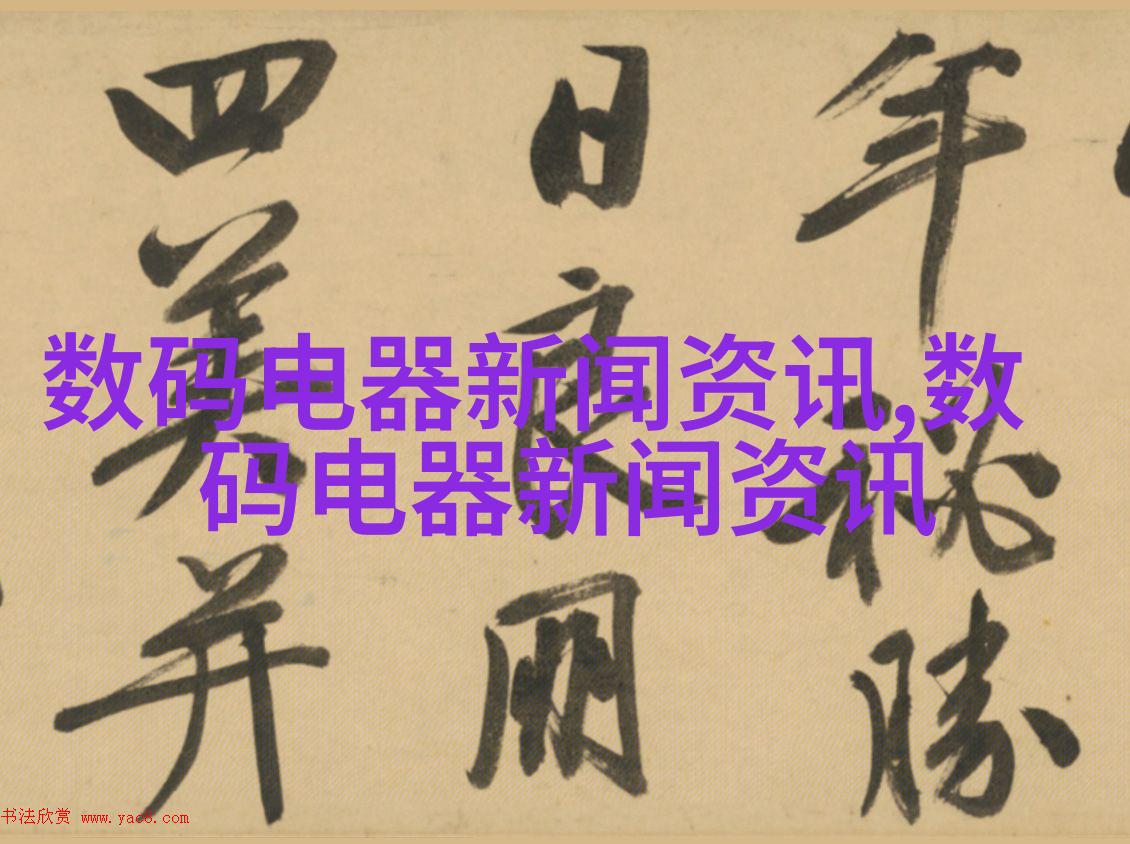 年秘勝
日良朋
四美并
数码电器新闻资讯,数
码电器新闻资讯
书法欣赏 www.yac8.com